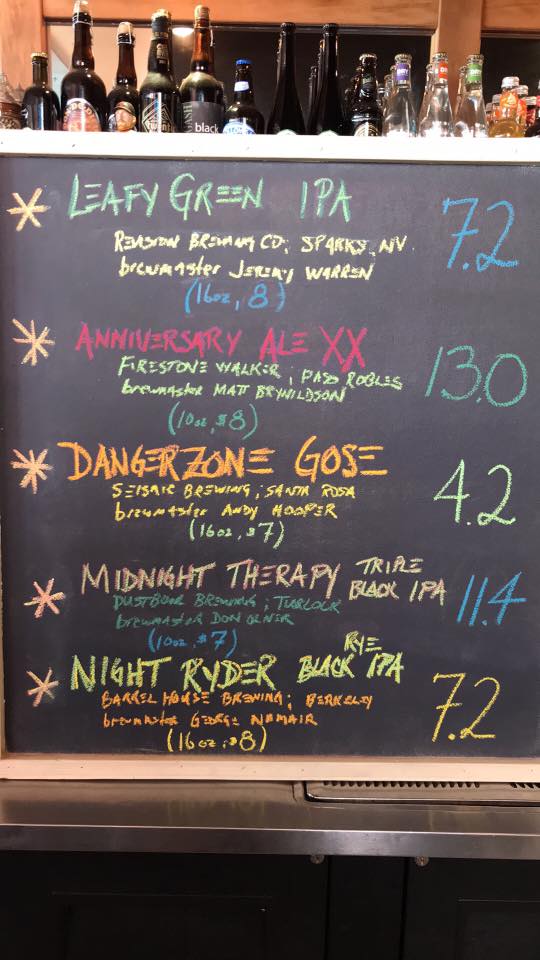 LEAFY GREEN IPA
7.2
REVISION BREWING CO; SPARKS, NV.
brewmaster JEREMY WARREN
(16oz, 8)
ANNIVERSARY ALE XX
13.0
FIRESTONE WALKER; PASO ROBLES
brewmaster MATT BRYNILDSON
(10oz, $8)
DANGERZONE GOSE
4.2
SEISMIC BREWING; SANTA ROSA
brewmaster ANDY HOOPER
(16oz, $7)
MIDNIGHT THERAPY TRIPLE BLACK IPA
11.4
DUSTBOWL BREWING; TURLOCK
brewmaster DON OLIVER
(10oz, $7)
NIGHT RYDER RYE BLACK IPA
7.2
BARREL HOUSE BREWING; BERKELEY
brewmaster GEORGE
(16oz, $8)
black